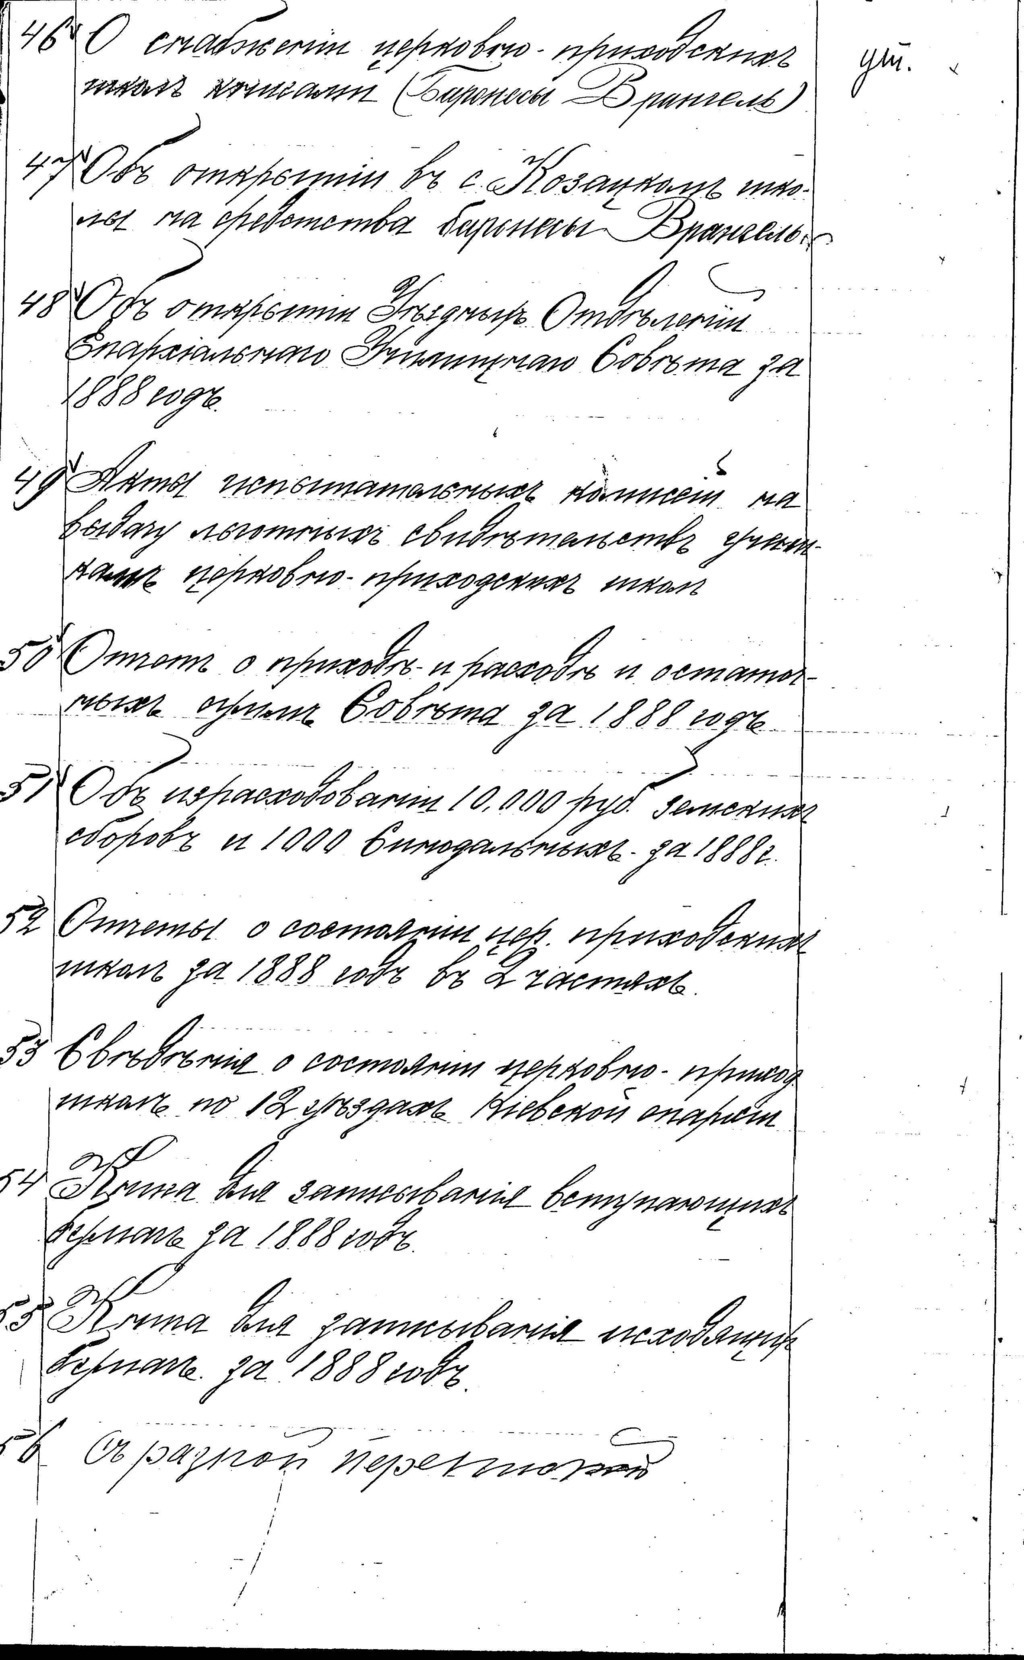 46 О снабженіи церковно-приходскихъ
школъ книгами (Баронесы Врангель)
47 Объ открытіи въ с. Козацкомъ шко-
лы на средства баронесы Врангель.
48 Объ открытіи Уѣздныхъ Отдѣленій
Епархіальнаго Училищнаго Совѣта за
1888 годъ.
49 Акты испытательныхъ комисій на
выдачу льготныхъ свидѣтельствъ учени-
камъ церковно-приходскихъ школъ
50 Отчетъ о приходѣ и расходѣ и остаточ-
ныхъ сумъ Совѣта за 1888 годъ
51 Объ израсходованіи 10.000 руб. земскихъ
сборовъ и 1000 Синодальныхъ за 1888 г.
52 Отчеты о состояніи цер. приходскихъ
школъ за 1888 годъ въ 2 частяхъ.
53 Свѣдѣнія о состояніи церковно-приход
школъ по 12 уѣздахъ Кіевской епархіи
54 Книга для записыванія вступающихъ
бумагъ за 1888 годъ.
55 Книга для записыванія исходящихъ
бумагъ за 1888 годъ.
56 Съ разной перепиской